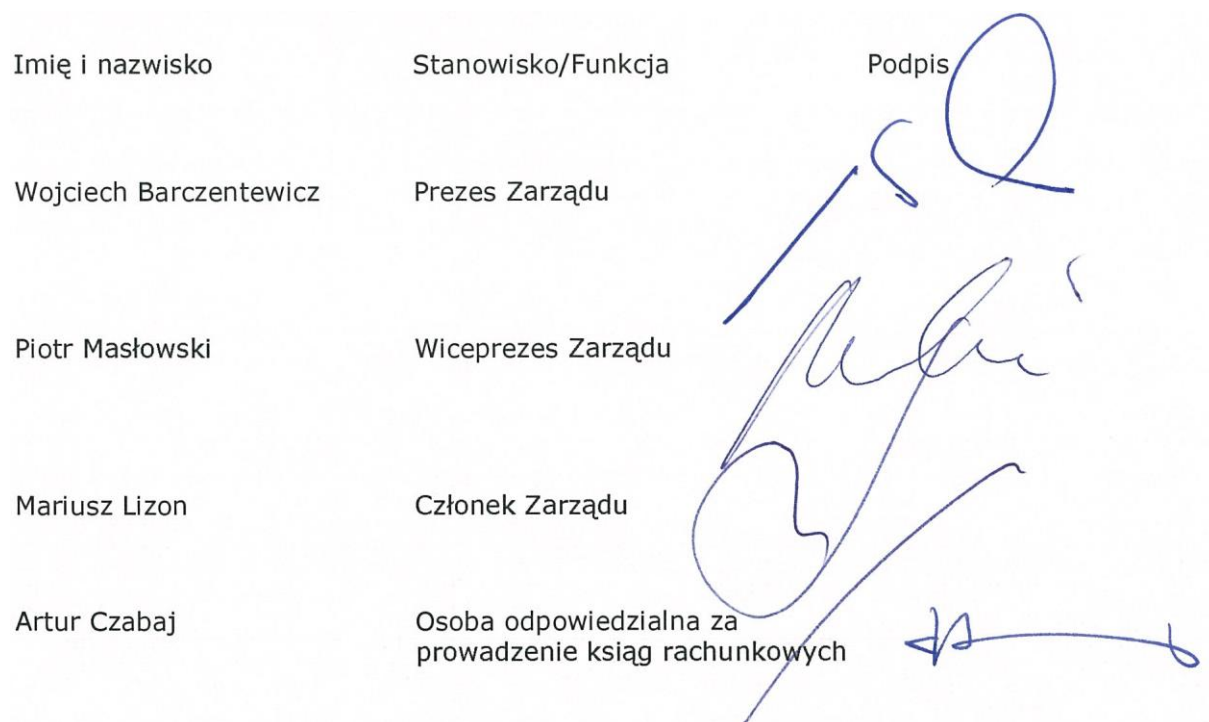 Imię i nazwisko Stanowisko/Funkcja Podpis
Wojciech Barczentewicz Prezes Zarządu
Piotr Masłowski Wiceprezes Zarządu
Mariusz Lizon Członek Zarządu
Artur Czabaj Osoba odpowiedzialna za
prowadzenie ksiąg rachunkowych